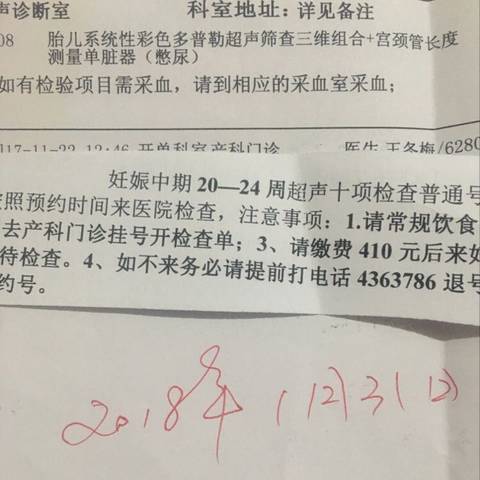 声诊断室 科室地址：详见备注
08 胎儿系统性彩色多普勒超声筛查三维组合+宫颈管长度
测量单脏器（憋尿）
如有检验项目需采血，请到相应的采血室采血；
017-11-22 12:46 开单科室 产科门诊 医生 王冬梅/6280
妊娠中期20—24周超声十项检查普通号
按照预约时间来医院检查，注意事项：1.请常规饮食
去产科门诊挂号开检查单；3、请缴费410元后来如
待检查。4、如不来务必请提前打电话4363786退号
约号。
2018年1月31日